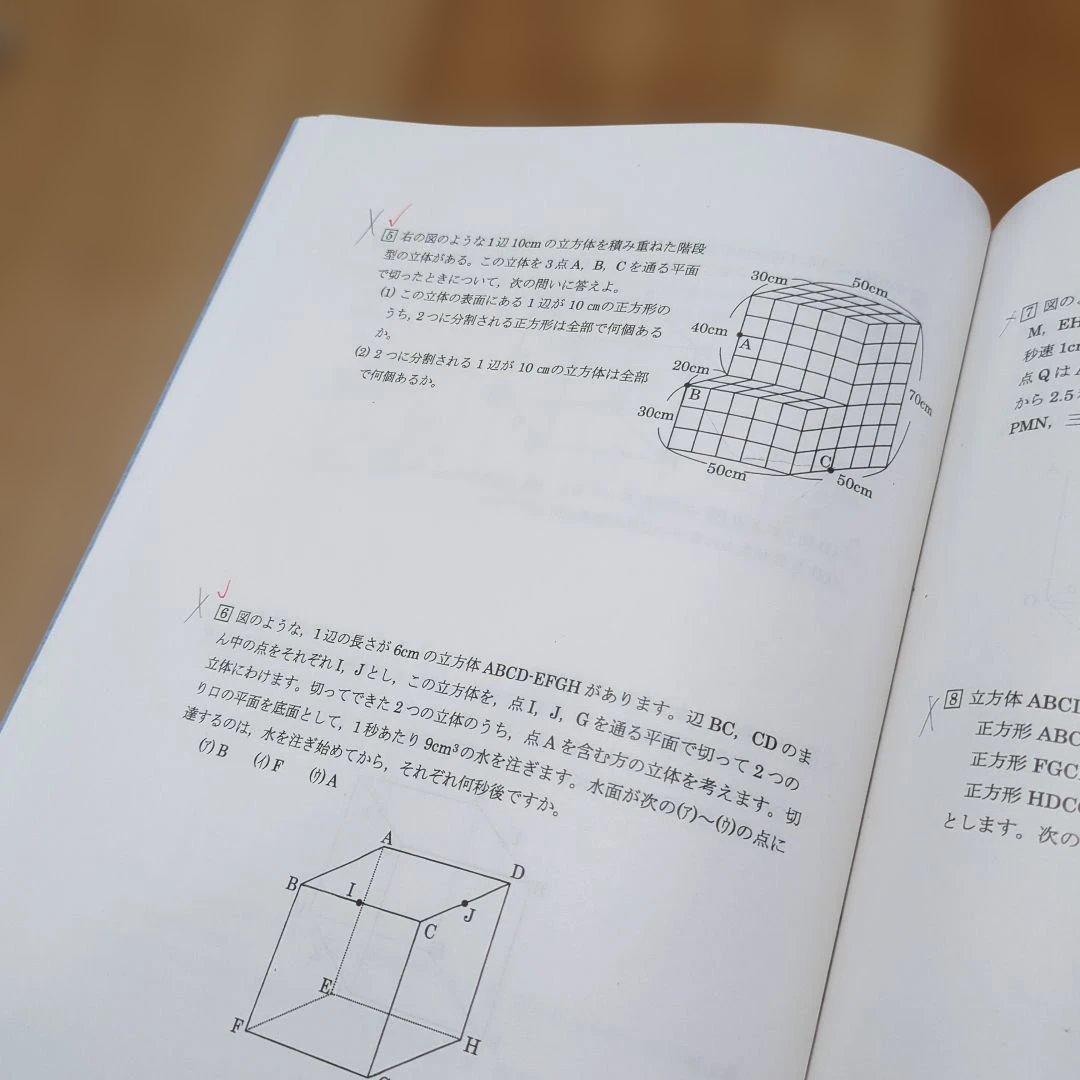 5 右の図のような1辺10cmの立方体を積み重ねた階段
型の立体がある。この立体を3点A，B，Cを通る平面
で切ったときについて，次の問いに答えよ。
(1) この立体の表面にある1辺が10㎝の正方形の
うち，2つに分割される正方形は全部で何個ある
か。
(2) 2つに分割される1辺が10㎝の立方体は全部
で何個あるか。
30cm
50cm
40cm
A
20cm
B
30cm
70cm
50cm
C
50cm
6 図のような，1辺の長さが6cmの立方体ABCD-EFGHがあります。辺BC，CDのま
ん中の点をそれぞれI，Jとし，この立方体を，点I，J，Gを通る平面で切って2つの
立体にわけます。切ってできた2つの立体のうち，点Aを含む方の立体を考えます。切
り口の平面を底面として，1秒あたり9cm³の水を注ぎます。水面が次の(ｱ)～(ｳ)の点に
達するのは，水を注ぎ始めてから，それぞれ何秒後ですか。
(ｱ)B (ｲ)F (ｳ)A
A
D
B
I
J
C
E
F
H
7 図の
M，EH
秒速1c
点Qは
から2.5
PMN，三
8 立方体ABCD
正方形ABC
正方形FGC
正方形HDC
とします。次の